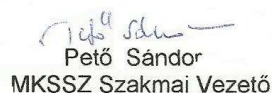 Pető Sándor
MKSSZ Szakmai Vezető